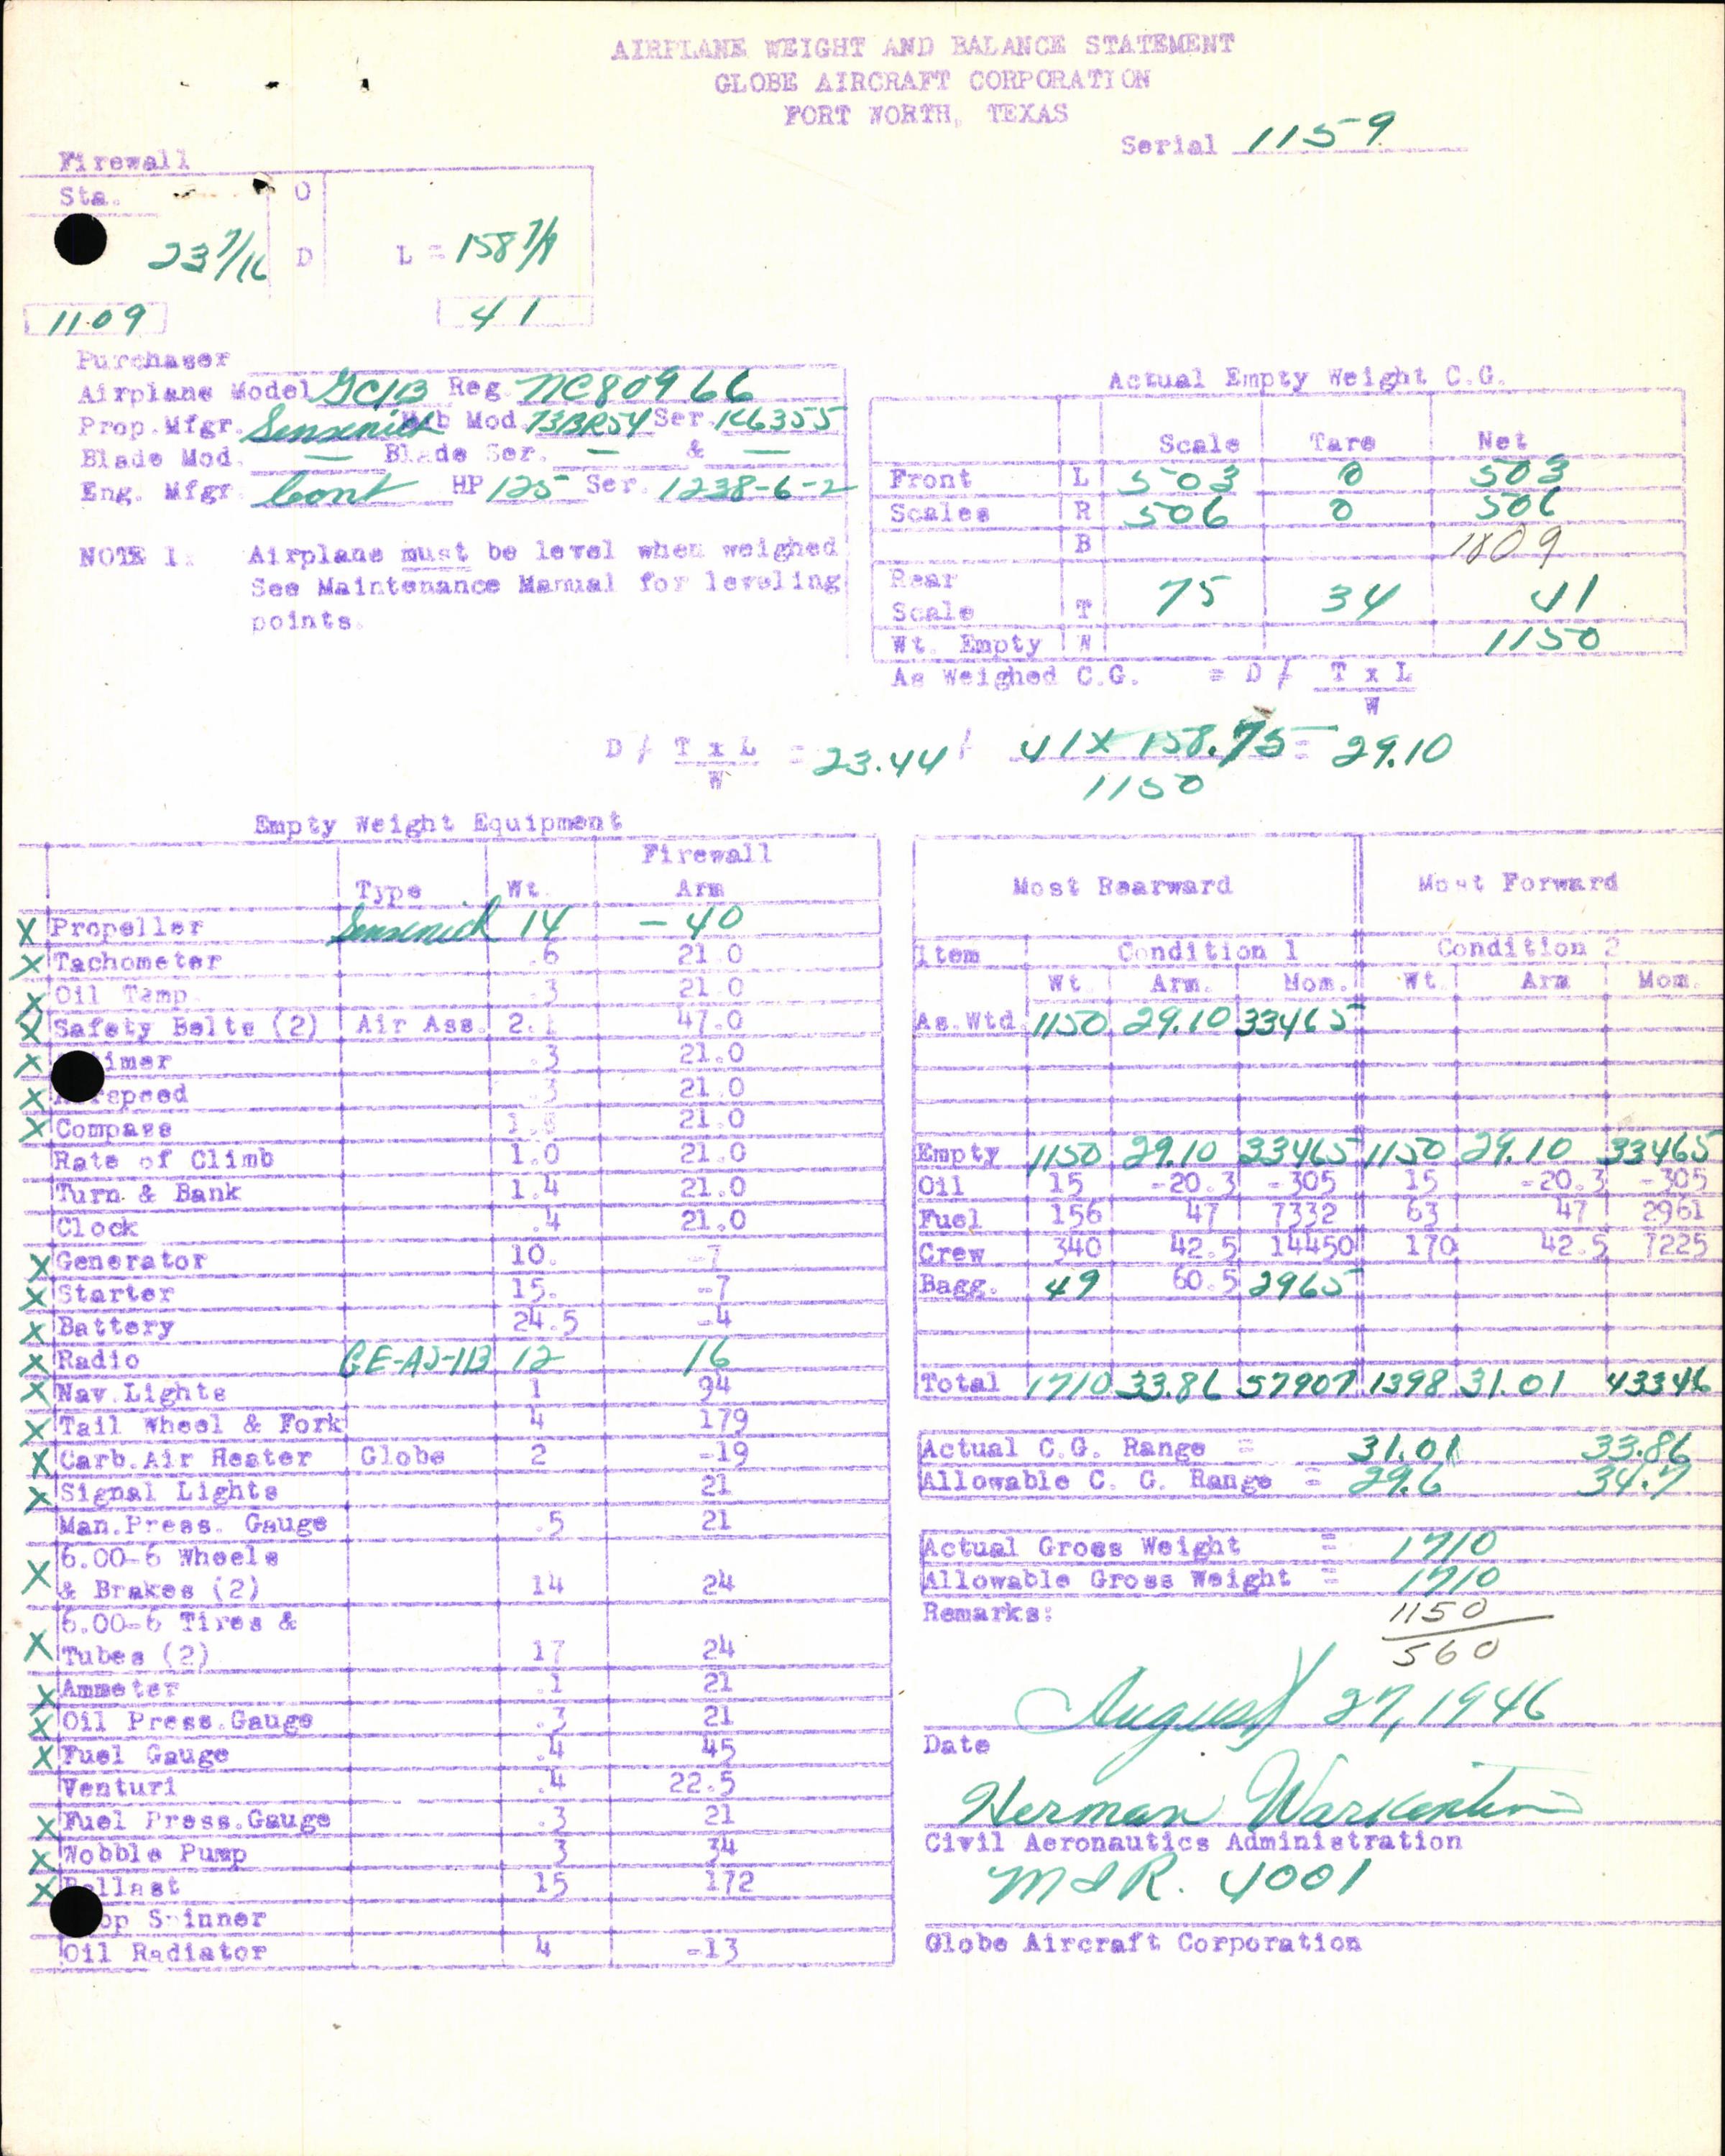 AIRPLANE WEIGHT AND BALANCE STATEMENT
GLOBE AIRCRAFT CORPORATION
FORT WORTH, TEXAS
Serial 1159
Firewall
Sta. O
23 7/16 D L = 158
1109 41
Purchaser
Airplane Model GC1B Reg. NC80966
Prop. Mfgr. Sensenich Hub Mod. 73BR54 Ser. K6355
Blade Mod. — Blade Ser. — & —
Eng. Mfgr. Cont HP 125 Ser. 1238-6-2
NOTE 1. Airplane must be level when weighed
See Maintenance Manual for leveling
points.
Actual Empty Weight C.G.
Scale Tare Net
Front L 503 0 503
Scales R 506 0 506
B 1009
Rear
Scale T 75 34 41
Wt. Empty W 1150
As Weighed C.G. = D / T x L
W
D / T x L = 23.44 / 41 X 158.75 = 29.10
W 1150
Empty Weight Equipment
Firewall
Type Wt. Arm
X Propeller Sensenich 14 -40
X Tachometer .6 21.0
X Oil Temp. .3 21.0
X Safety Belts (2) Air Ass. 2.1 47.0
X imer .3 21.0
X rspeed .3 21.0
X Compass 21.0
Rate of Climb 1.0 21.0
Turn & Bank 1.4 21.0
Clock .4 21.0
X Generator 10. -7
X Starter 15. -7
X Battery 24.5 -4
X Radio GE-AS-113 12 16
X Nav. Lights 1 94
X Tail Wheel & Fork 4 179
X Carb. Air Heater Globe 2 -19
X Signal Lights 21
Man. Press. Gauge .5 21
6.00-6 Wheels
X & Brakes (2) 14 24
6.00-6 Tires &
X Tubes (2) 17 24
X Ammeter .1 21
X Oil Press. Gauge .3 21
X Fuel Gauge .4 45
Venturi .4 22.5
X Fuel Press. Gauge .3 21
X Wobble Pump 3 34
X Ballast 15 172
op Spinner
Oil Radiator 4 -13
Most Rearward Most Forward
Item Condition 1 Condition 2
Wt. Arm. Mom. Wt. Arm Mom.
As. Wtd. 1150 29.10 33465
Empty 1150 29.10 33465 1150 29.10 33465
Oil 15 -20.3 -305 15 -20.3 -305
Fuel 156 47 7332 63 47 2961
Crew 340 42.5 14450 170 42.5 7225
Bagg. 49 60.5 2965
Total 1710 33.86 57907 1398 31.01 43346
Actual C.G. Range = 31.01 33.86
Allowable C. G. Range = 29.6 34.7
Actual Gross Weight = 1710
Allowable Gross Weight = 1710
Remarks: 1150
560
August 27, 1946
Date
Herman Warkentin
Civil Aeronautics Administration
M I R. 4001
Globe Aircraft Corporation